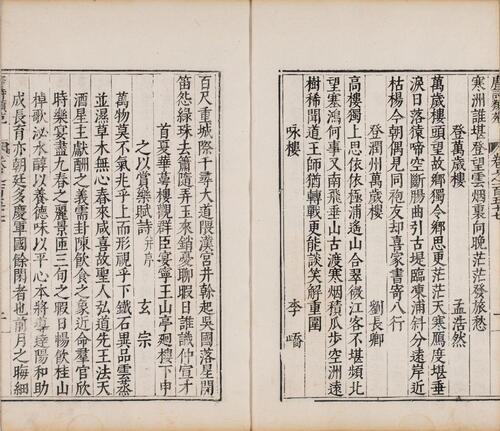 寒洲誰堪登望雲烟裏向晚茫茫發旅愁
登萬歲樓 孟浩然
萬歲樓頭望故鄉獨令鄉思更茫茫天寒鴈度堪垂
淚日落猿啼空斷腸曲引古堤臨東浦斜分遠岸近
枯楊今朝偶見同袍友却喜家書寄八行
登潤州萬歲樓 劉長卿
高樓獨上思依依極浦遙山合翠微江客不堪頻北
望塞鴻何事又南飛垂山古渡寒烟積瓜步空洲遠
樹稀聞道王師猶轉戰更能談笑解重圍
咏樓 李嶠
百尺重城際千尋大道隈漢宮井幹起吳國落星開
笛怨綠珠去簫隨弄玉來銷憂聊暇日誰識仲宣才
首夏華萼樓觀群臣宴寧王山亭廻樓下申
之以賞樂賦詩并序 玄宗
萬物莫不氣兆乎上而形視乎下鐵石異品雲蒸
並濕草木無心春來咸喜故聖人弘道先王法天
酒星主獻酬之義需卦陳飲食之象近命羣官欣
時樂宴盡九春之麗景匝三旬之暇日暢飲桂山
棹歌泌水醇以養德味以平心本將導達陽和助
成長育亦朝廷多慶軍國餘閑者也前月之晦細